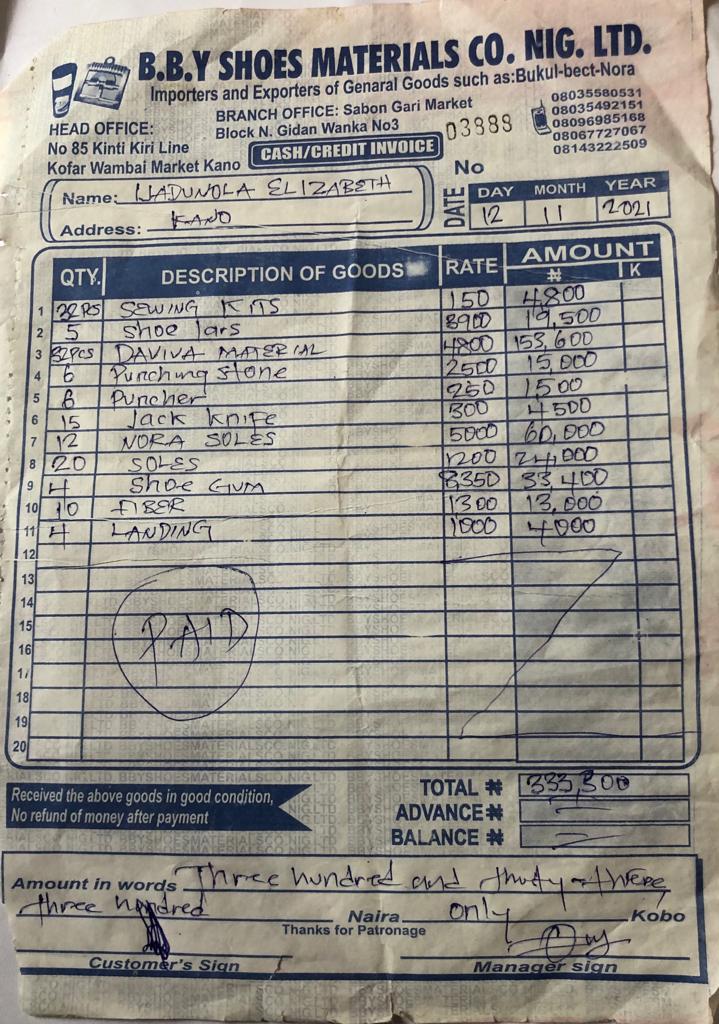 B.B.Y SHOES MATERIALS CO. NIG. LTD.
Importers and Exporters of Genaral Goods such as:Bukul-bect-Nora
HEAD OFFICE:
No 85 Kinti Kiri Line
Kofar Wambai Market Kano
BRANCH OFFICE: Sabon Gari Market
Block N. Gidan Wanka No3
03889
08035580531
08035492151
08096985168
08067727067
08143222509
CASH/CREDIT INVOICE
No
Name: ELIZABETH
Address: KANO
DATE DAY MONTH YEAR
12 11 2021
QTY. DESCRIPTION OF GOODS RATE AMOUNT
₦ K
1 32PCS SEWING KITS 150 4,800
2 5 Shoe lars 3900 19,500
3 32PCS DAVIVA MATERIAL 4800 153,600
4 6 Punching stone 2500 15,000
5 6 Puncher 250 1500
6 15 Jack knife 300 4500
7 12 NORA SOLES 5000 60,000
8 20 SOLES 1200 24,000
9 4 Shoe GUM 8,350 33,400
10 10 FIBER 1300 13,000
11 4 LANDING 1000 4000
12
13
14
15
16
17
18
19
20
PAID
Received the above goods in good condition,
No refund of money after payment
TOTAL ₦ 333,300
ADVANCE ₦
BALANCE ₦
Amount in words Three hundred and thirty-three,
three hundred Naira only Kobo
Thanks for Patronage
Customer's Sign Manager sign